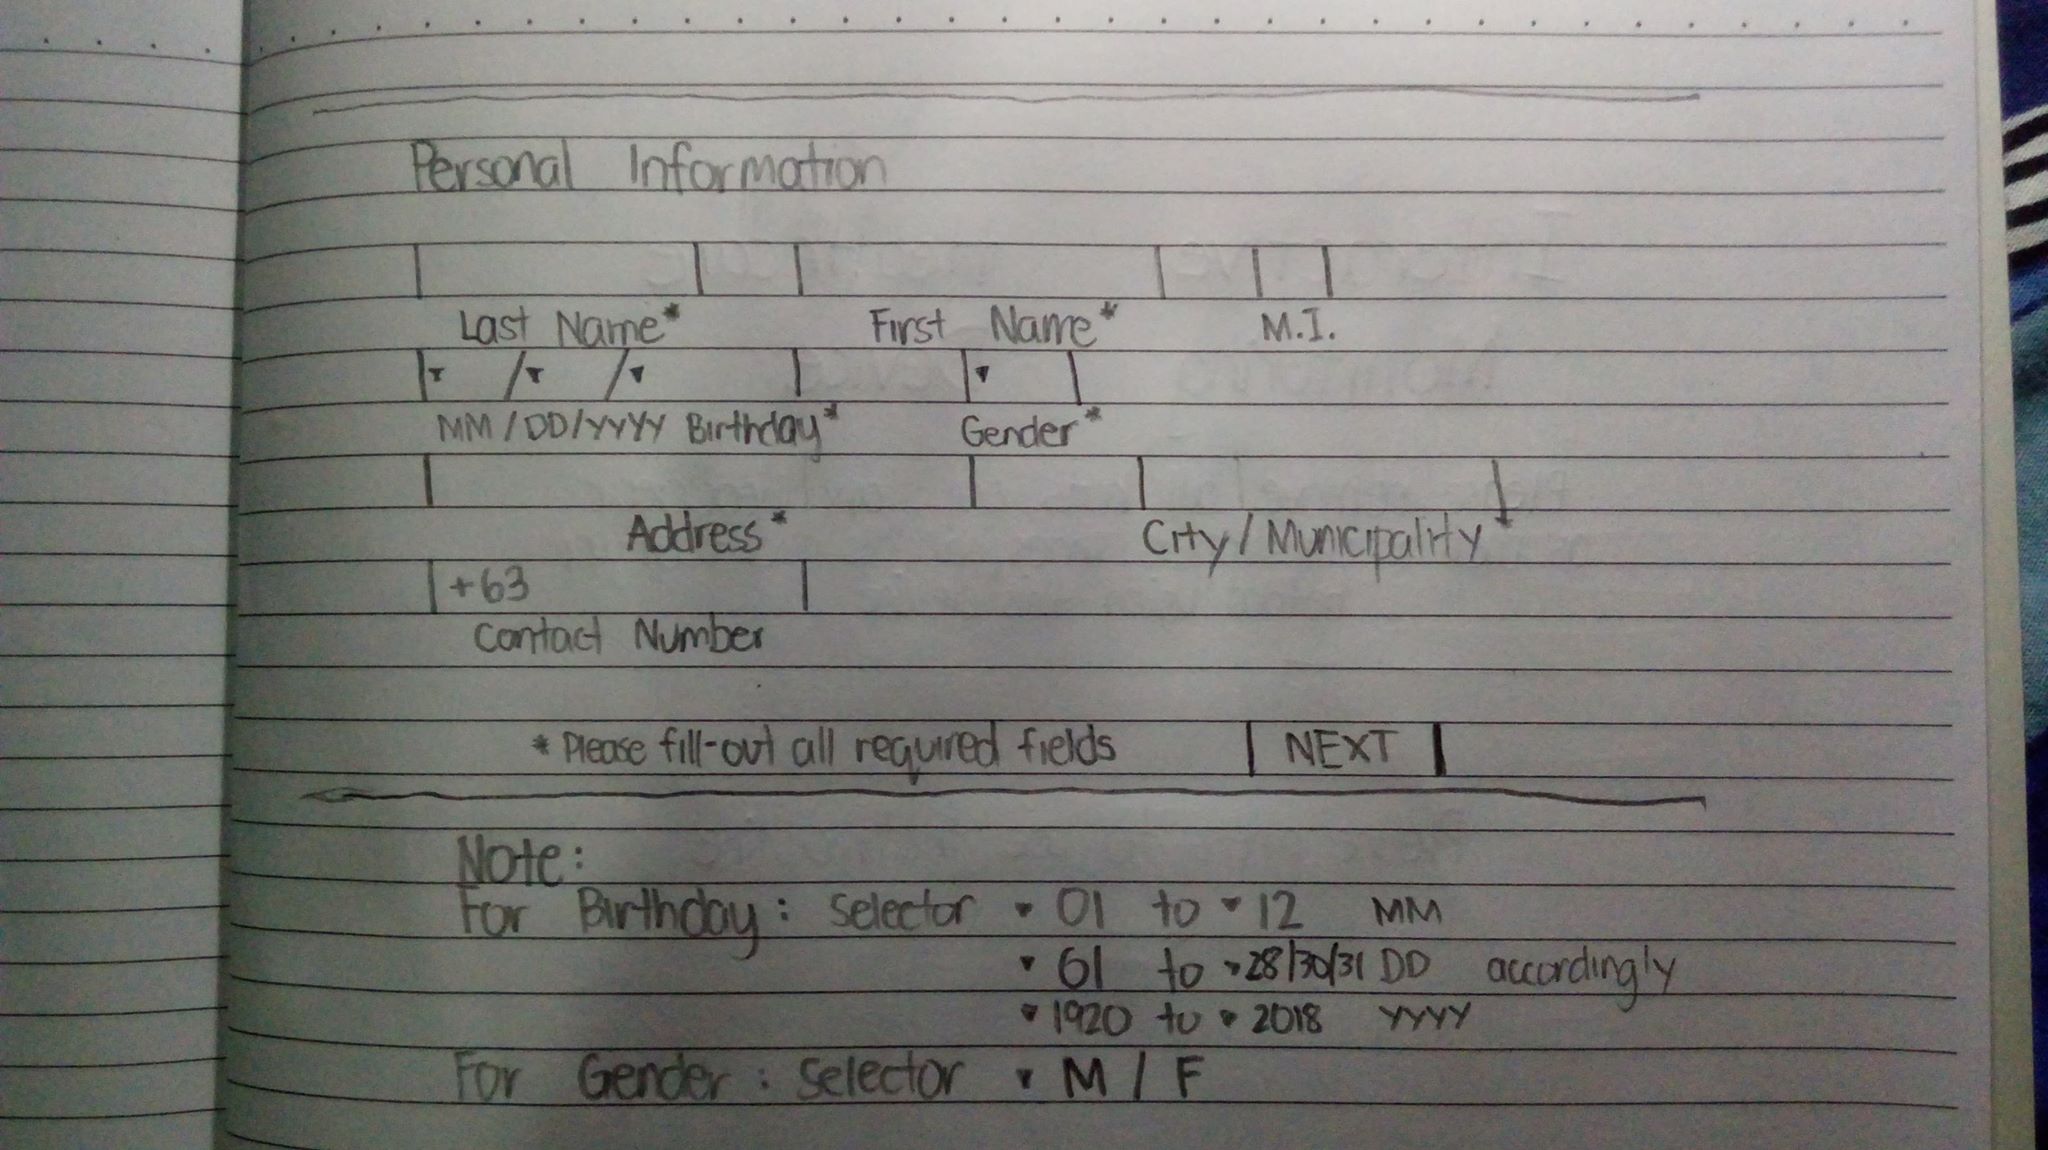 Personal Information
Last Name* First Name* M.I.
MM/DD/YYYY Birthday* Gender*
Address* City/Municipality*
+63
Contact Number
*Please fill-out all required fields NEXT
Note:
For Birthday: selector ▾ 01 to ▾ 12 MM
▾ 01 to ▾ 28/30/31 DD accordingly
▾ 1920 to ▾ 2018 YYYY
For Gender: selector ▾ M / F